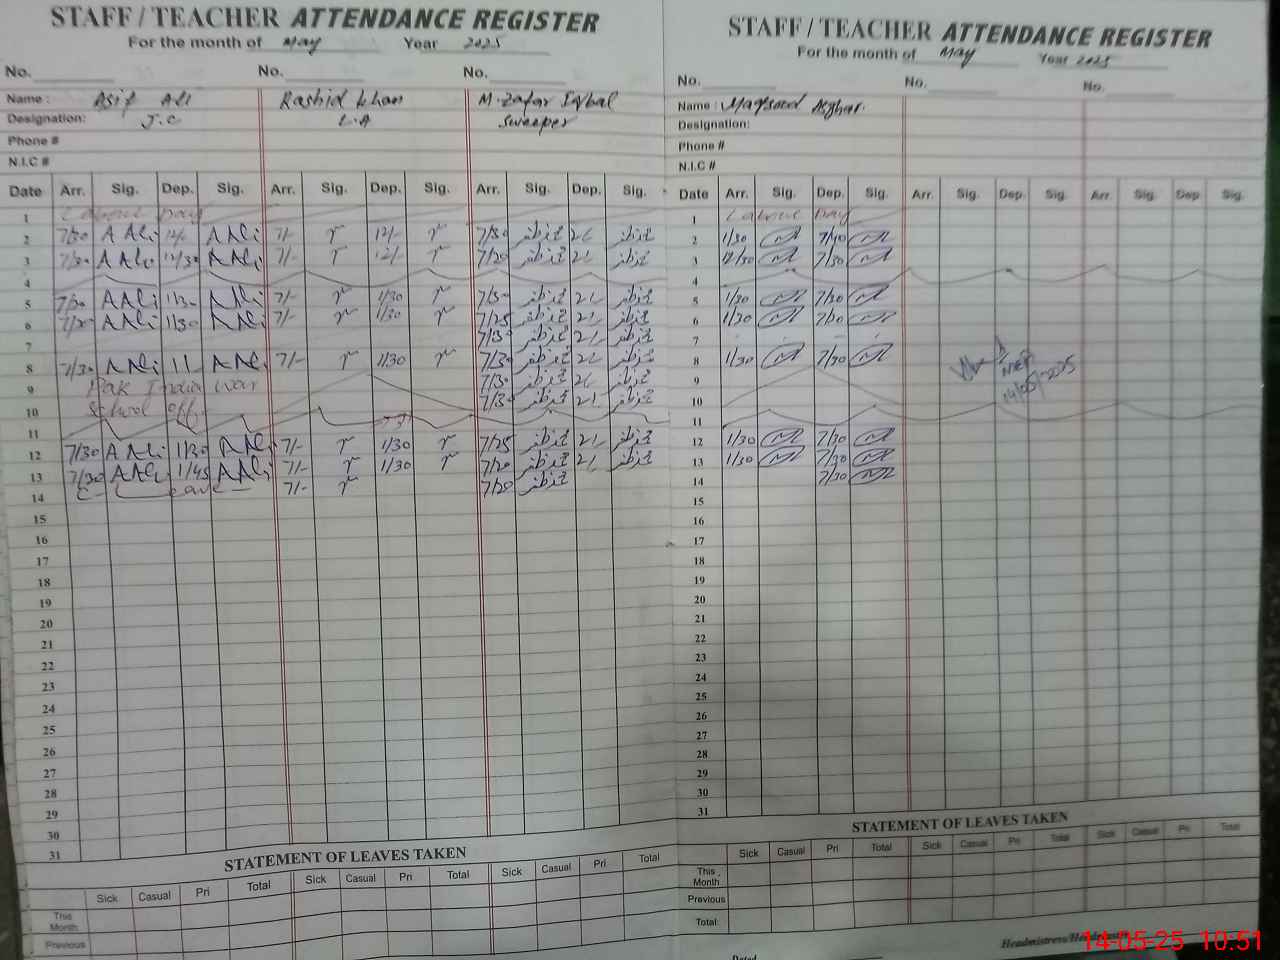 STAFF / TEACHER ATTENDANCE REGISTER
For the month of May Year 2025
No. No. No.
Name : Asif Ali Rashid Khan M. Zafar Iqbal
Designation: J.C L.A Sweeper
Phone #
N.I.C #
Date Arr. Sig. Dep. Sig. Arr. Sig. Dep. Sig. Arr. Sig. Dep. Sig.
1 Labour Day
2 7/30 A Ali 12/- A Ali 7/- 12/- 7/30 محمد ظفر 2/- محمد ظفر
3 7/30 A Ali 12/30 A Ali 7/- 12/- 7/20 محمد ظفر 2/- محمد ظفر
4
5 7/30 A Ali 1/30 A Ali 7/- 1/30 7/30 محمد ظفر 2/- محمد ظفر
6 7/30 A Ali 1/30 A Ali 7/- 1/30 7/25 محمد ظفر 2/- محمد ظفر
7 7/30 محمد ظفر 2/- محمد ظفر
8 7/30 A Ali A Ali 7/- 1/30 7/30 محمد ظفر 2/- محمد ظفر
9 Pak India war 7/30 محمد ظفر 2/- محمد ظفر
10 School off 7/30 محمد ظفر 2/- محمد ظفر
11
12 7/30 A Ali 1/30 A Ali 7/- 1/30 7/25 محمد ظفر 2/- محمد ظفر
13 7/30 A Ali 1/45 A Ali 7/- 1/30 7/20 محمد ظفر 2/- محمد ظفر
14 C- Leave 7/- 7/20 محمد ظفر
15
16
17
18
19
20
21
22
23
24
25
26
27
28
29
30
31
STATEMENT OF LEAVES TAKEN
Sick Casual Pri Total Sick Casual Pri Total Sick Casual Pri Total
This Month
Previous
STAFF / TEACHER ATTENDANCE REGISTER
For the month of May Year 2025
No. No. No.
Name : Maqsood Asghar
Designation:
Phone #
N.I.C #
Date Arr. Sig. Dep. Sig. Arr. Sig. Dep. Sig. Arr. Sig. Dep Sig.
1 Labour Day
2 1/30 7/30
3 12/30 7/30
4
5 1/30 7/30
6 1/30 7/30
7
8 1/30 7/30
9
10 14/05/2025
11
12 1/30 7/30
13 1/30 7/30
14 7/30
15
16
17
18
19
20
21
22
23
24
25
26
27
28
29
30
31
STATEMENT OF LEAVES TAKEN
Sick Casual Pri Total Sick Casual Pri Total Sick Casual Pri Total
This Month
Previous
Total:
Dated
14-05-25 10:51